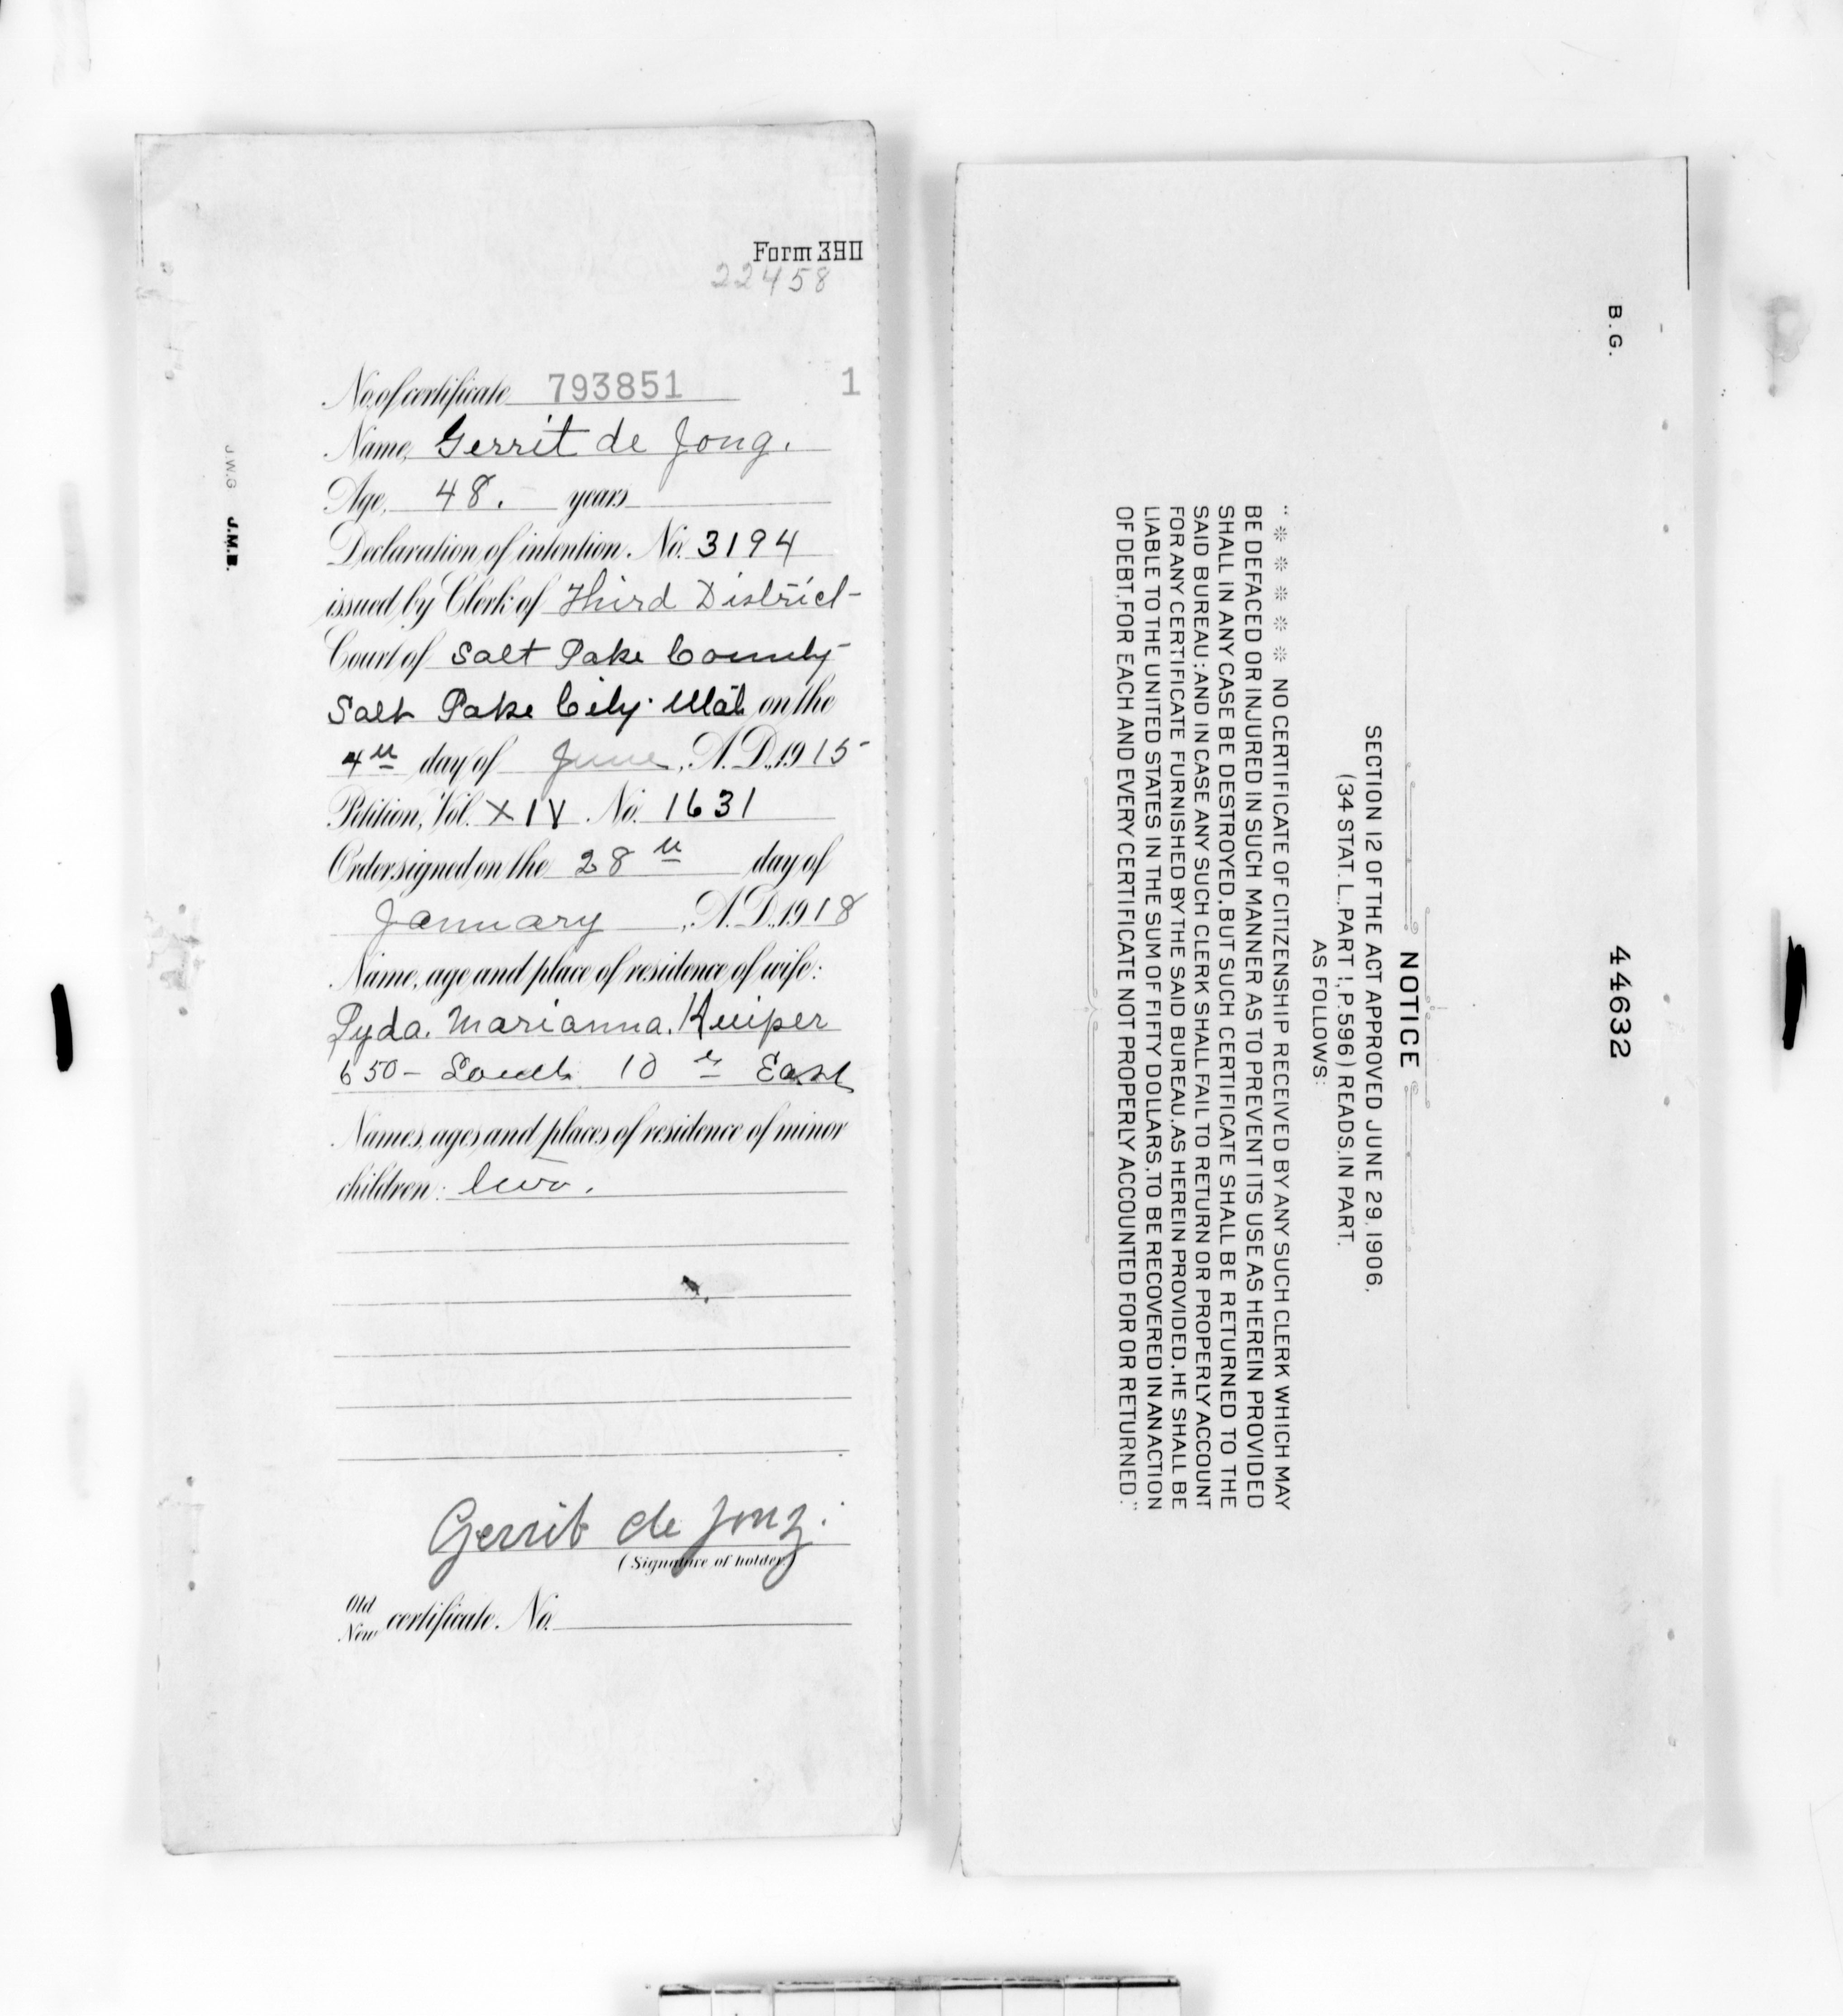 Form 390
22458
No. of certificate 793851 1
Name, Gerrit de Jong.
Age, 48. years
Declaration of intention. No. 3194
issued by Clerk of Third District
Court of Salt Lake County
Salt Lake City. Utah on the
4th day of June, A.D. 1915
Petition, Vol. XIV No. 1631
Order signed on the 28th day of
January, A.D. 1918
Name, age and place of residence of wife:
Lyda. Marianna. Kuiper
650 - South 10th East
Names, ages and places of residence of minor
children: two.
Gerrit de Jong.
(Signature of holder)
Old
New certificate. No.
J.W.G J.M.B.
B.G. 44632
NOTICE
SECTION 12 OF THE ACT APPROVED JUNE 29, 1906,
(34 STAT. L., PART 1, P. 596) READS, IN PART.
AS FOLLOWS:
"* * * * * NO CERTIFICATE OF CITIZENSHIP RECEIVED BY ANY SUCH CLERK WHICH MAY
BE DEFACED OR INJURED IN SUCH MANNER AS TO PREVENT ITS USE AS HEREIN PROVIDED
SHALL IN ANY CASE BE DESTROYED, BUT SUCH CERTIFICATE SHALL BE RETURNED TO THE
SAID BUREAU; AND IN CASE ANY SUCH CLERK SHALL FAIL TO RETURN OR PROPERLY ACCOUNT
FOR ANY CERTIFICATE FURNISHED BY THE SAID BUREAU, AS HEREIN PROVIDED, HE SHALL BE
LIABLE TO THE UNITED STATES IN THE SUM OF FIFTY DOLLARS, TO BE RECOVERED IN AN ACTION
OF DEBT, FOR EACH AND EVERY CERTIFICATE NOT PROPERLY ACCOUNTED FOR OR RETURNED."